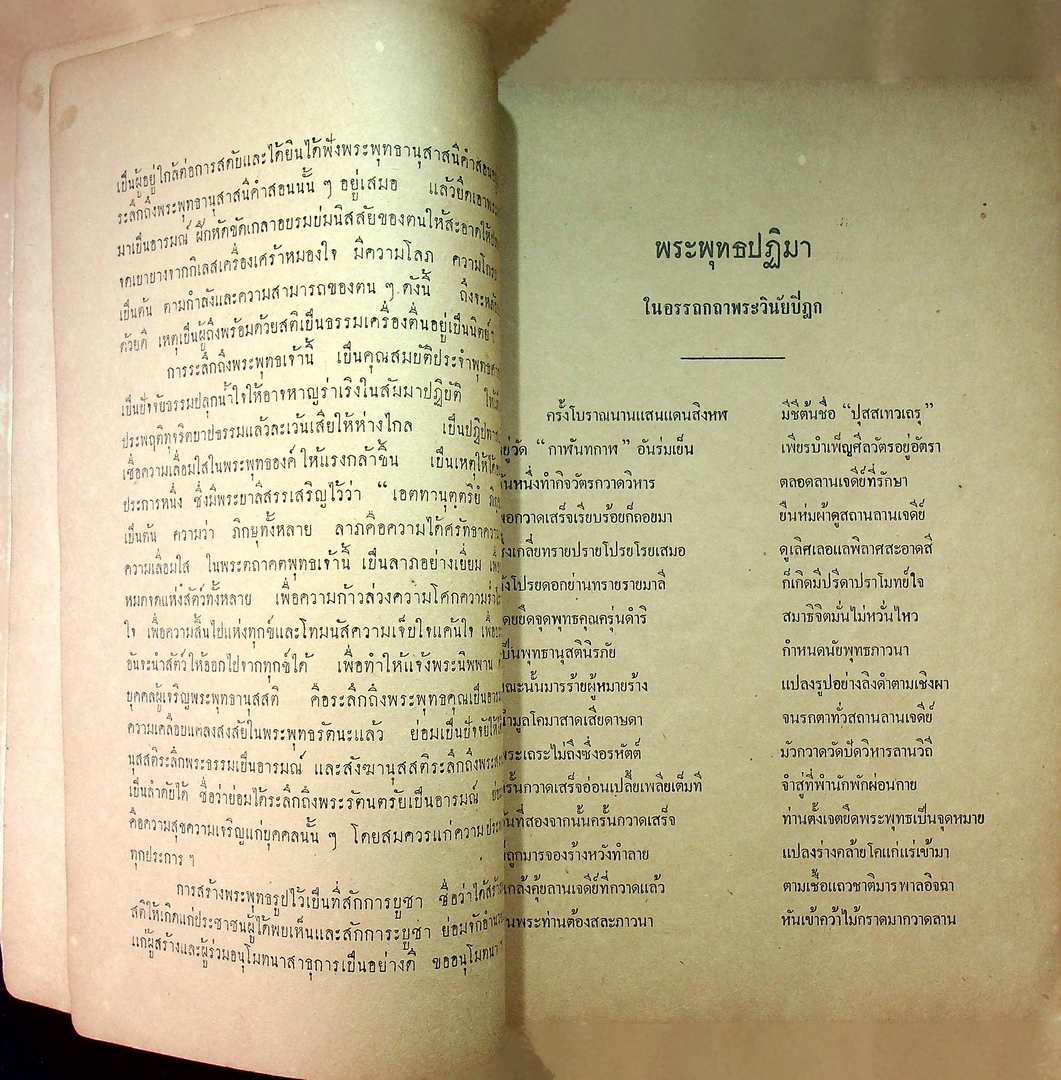 เป็นผู้อยู่ใกล้ต่อการสดับและได้ยินได้ฟังพระพุทธานุสาสนีคำสอน
ระลึกถึงพระพุทธานุสาสนีคำสอนนั้น ๆ อยู่เสมอ แล้วยึดเอา
มาเป็นอารมณ์ ฝึกหัดขัดเกลาอบรมบ่มนิสสัยของตนให้สะอาด
จดเยายางจากกิเลสเครื่องเศร้าหมองใจ มีความโลภ ความโกรธ
เป็นต้น ตามกำลังและความสามารถของตน ๆ ดังนี้
ด้วยดี เหตุเป็นผู้ถึงพร้อมด้วยสติเป็นธรรมเครื่องตื่นอยู่เป็นนิตย์ฯ
การระลึกถึงพระพุทธเจ้านี้ เป็นคุณสมบัติประจำพุทธ
เป็นปัจจัยธรรมปลุกน้ำใจให้อาจหาญร่าเริงในสัมมาปฏิบัติ
ประพฤติทุจริตบาปธรรมแล้วละเว้นเสียให้ห่างไกล
เชื่อความเลื่อมใสในพระพุทธองค์ ให้แรงกล้าขึ้น เป็นเหตุให้ได้
ประการหนึ่ง ซึ่งมีพระบาลีสรรเสริญไว้ว่า “ เอตทานุตฺตริยํ
เป็นต้น ความว่า ภิกษุทั้งหลาย ลาภคือความได้ศรัทธา
ความเลื่อมใส ในพระตถาคตพุทธเจ้านี้ เป็นลาภอย่างเยี่ยม
หมดจดแห่งสัตว์ทั้งหลาย เพื่อความก้าวล่วงความโศก
ใจ เพื่อความสิ้นไปแห่งทุกข์และโทมนัสความเจ็บใจแค้นใจ
อันจะนำสัตว์ให้ออกไปจากทุกข์ได้ เพื่อทำให้แจ้งพระนิพพาน
บุคคลผู้เจริญพระพุทธานุสสติ คือระลึกถึงพระพุทธคุณเป็น
ความเคลือบแคลงสงสัยในพระพุทธรัตนะแล้ว ย่อมเป็นปัจจัยให้
นุสสติระลึกพระธรรมเป็นอารมณ์ และสังฆานุสสติระลึกถึงพระ
เป็นลำดับได้ ชื่อว่าย่อมได้ระลึกถึงพระรัตนตรัยเป็นอารมณ์
คือความสุขความเจริญแก่บุคคลนั้น ๆ โดยสมควรแก่ความ
ทุกประการ ฯ
การสร้างพระพุทธรูปไว้เป็นที่สักการบูชา ชื่อว่าได้
สติให้เกิดแก่ประชาชนผู้ได้พบเห็นและสักการะบูชา
แก่ผู้สร้างและผู้ร่วมอนุโมทนาสาธุการเป็นอย่างดี ขออนุโมทนา
พระพุทธปฏิมา
ในอรรถกถาพระวินัยปิฎก
ครั้งโบราณนานแสนแดนสิงหฬ มีชีต้นชื่อ “ปุสสเทวเถรุ”
อยู่วัด “กาฬันทกาฬ” อันร่มเย็น เพียรบำเพ็ญศีลวัตรอยู่อัตรา
วันหนึ่งทำกิจวัตรกวาดวิหาร ตลอดลานเจดีย์ที่รักษา
พอกวาดเสร็จเรียบร้อยก็ถอยมา ยืนห่มผ้าดูสถานลานเจดีย์
เกลี่ยทรายปรายโปรยโรยเสมอ ดูเลิศเลอแลพิลาศสะอาดสี
โปรยดอกย่านทรายรายมาลี ก็เกิดมีปรีดาปราโมทย์ใจ
โดยยึดจุดพุทธคุณครุ่นดำริ สมาธิจิตมั่นไม่หวั่นไหว
เป็นพุทธานุสตินิรภัย กำหนดนัยพุทธภาวนา
ขณะนั้นมารร้ายผู้หมายร้าง แปลงรูปอย่างลิงดำตามเชิงผา
มูลโคมาสาดเสียดาษดา จนรกตาทั่วสถานลานเจดีย์
พระเถระไม่ถึงซึ่งอรหัตต์ มัวกวาดวัดปัดวิหารลานวิถี
ครั้นกวาดเสร็จอ่อนเปลี้ยเพลียเต็มที จำสู่ที่พำนักพักผ่อนกาย
วันที่สองจากนั้นครั้นกวาดเสร็จ ท่านตั้งเจตยึดพระพุทธเป็นจุดหมาย
ถูกมารจองร้างหวังทำลาย แปลงร่างคล้ายโคแก่แร่เข้ามา
แกล้งคุ้ยลานเจดีย์ที่กวาดแล้ว ตามเชื้อแถวชาติมารพาลอิจฉา
พระท่านต้องสละภาวนา หันเข้าคว้าไม้กราดมากวาดลาน